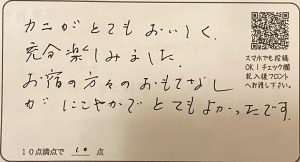 カニがとてもおいしく、
充分楽しみました。
お宿の方々のおもてなし
がにこやかでとてもよかったです。
10点満点で 10 点
スマホでも投稿
OK!チェック欄
記入後フロント
へお渡し下さい。